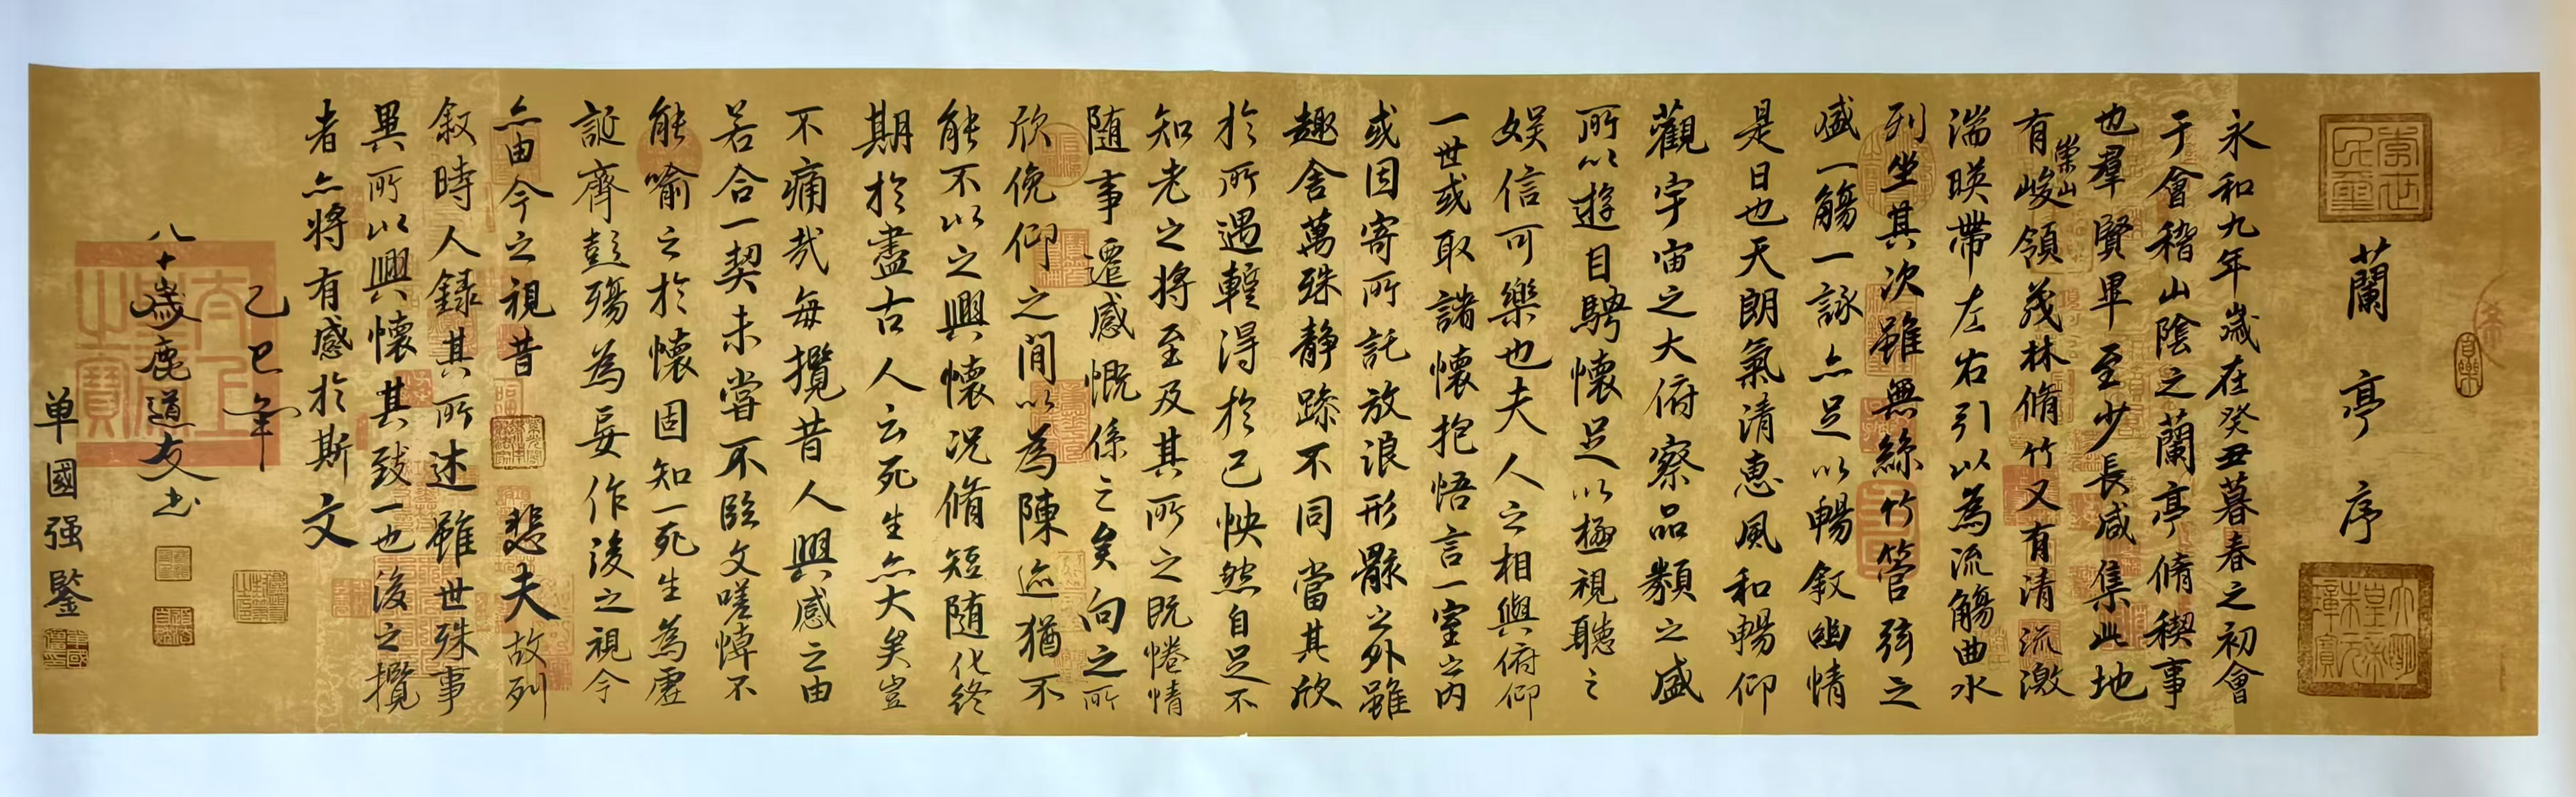 蘭亭序
永和九年歲在癸丑暮春之初會
于會稽山陰之蘭亭脩稧事
也羣賢畢至少長咸集此地
有崇山峻領茂林脩竹又有清流激
湍暎帶左右引以為流觴曲水
列坐其次雖無絲竹管弦之
盛一觴一詠亦足以暢叙幽情
是日也天朗氣清惠風和暢仰
觀宇宙之大俯察品類之盛
所以遊目騁懷足以極視聽之
娛信可樂也夫人之相與俯仰
一世或取諸懷抱悟言一室之內
或因寄所託放浪形骸之外雖
趣舍萬殊靜躁不同當其欣
於所遇暫得於己怏然自足不
知老之將至及其所之既惓情
隨事遷感慨係之矣向之所
欣俛仰之間以為陳迹猶不
能不以之興懷況脩短隨化終
期於盡古人云死生亦大矣豈
不痛哉每攬昔人興感之由
若合一契未嘗不臨文嗟悼不
能喻之於懷固知一死生為虛
誕齊彭殤為妄作後之視今
亦由今之視昔 悲夫故列
叙時人錄其所述雖世殊事
異所以興懷其致一也後之攬
者亦將有感於斯文
乙巳年
八十歲鹿道友书
单國强鑒